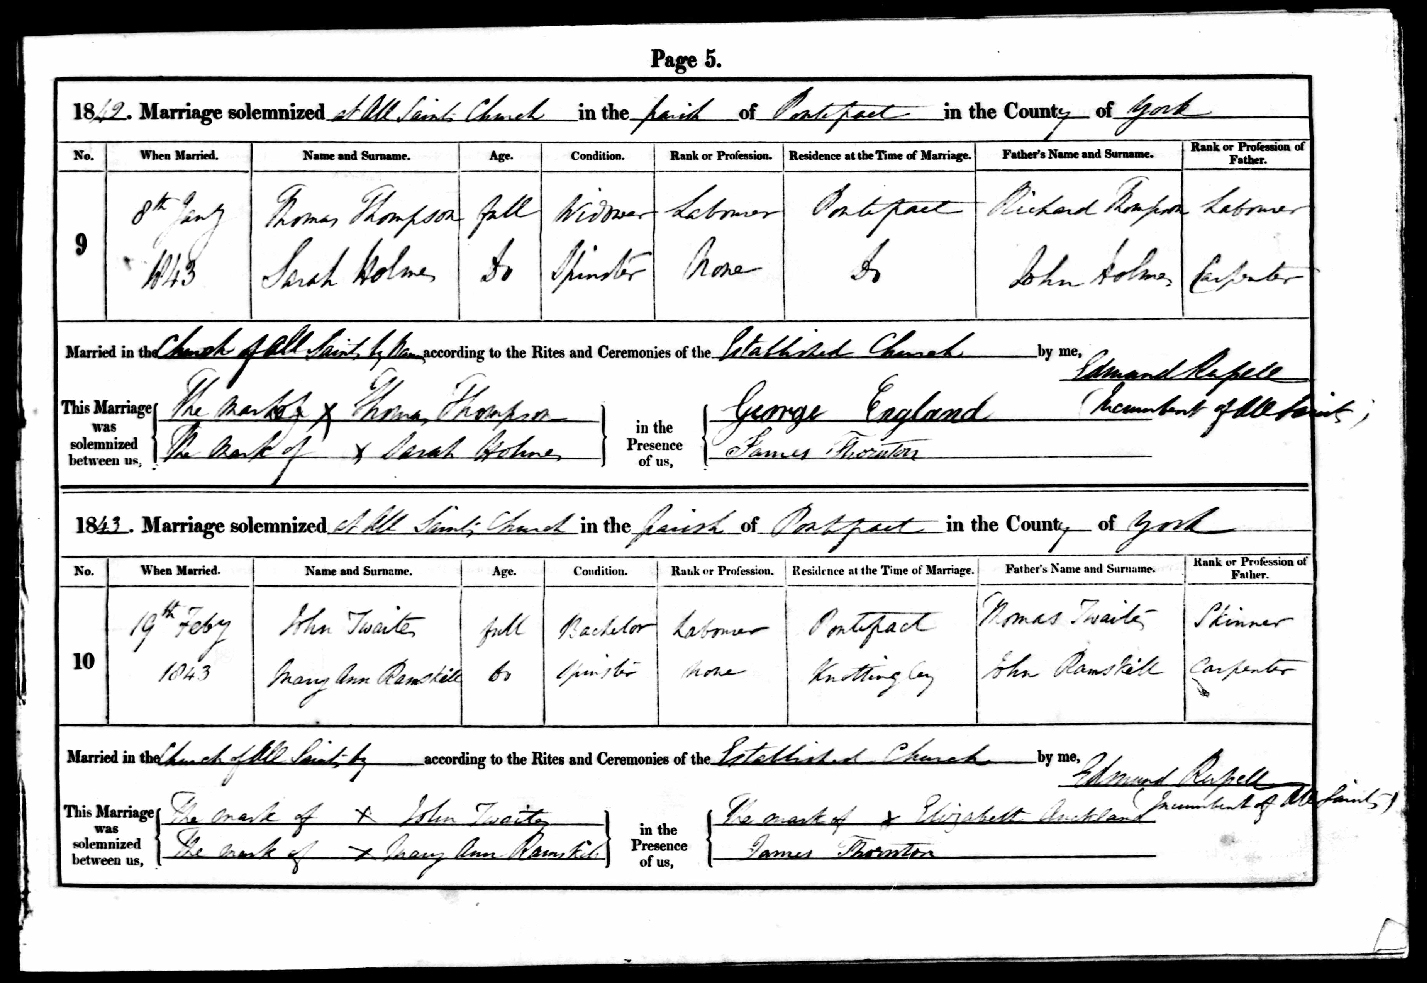 Page 5.
1842. Marriage solemnized at All Saints Church in the parish of Pontefract in the County of York
No. When Married. Name and Surname. Age. Condition. Rank or Profession. Residence at the Time of Marriage. Father's Name and Surname. Rank or Profession of Father.
9
8th Jany Thomas Thompson full Widower Labourer Pontefract Richard Thompson Labourer
1843 Sarah Holmes Do Spinster None Do John Holmes Carpenter
Married in the Church of All Saints by Banns according to the Rites and Ceremonies of the Established Church by me,
Edmund Russell
Incumbent of All Saints
This Marriage was solemnized between us,
The mark of x Thomas Thompson
The mark of x Sarah Holmes
in the Presence of us,
George England
James Thornton
1843. Marriage solemnized at All Saints Church in the parish of Pontefract in the County of York
No. When Married. Name and Surname. Age. Condition. Rank or Profession. Residence at the Time of Marriage. Father's Name and Surname. Rank or Profession of Father.
10
19th Feby John Twaites full Bachelor Labourer Pontefract Thomas Twaites Skinner
1843 Mary Ann Ramskill Do Spinster None Knottingley John Ramskill Carpenter
Married in the Church of All Saints by according to the Rites and Ceremonies of the Established Church by me,
Edmund Russell
Incumbent of All Saints
This Marriage was solemnized between us,
The mark of x John Twaites
The mark of x Mary Ann Ramskill
in the Presence of us,
The mark of x Elizabeth Auckland
James Thornton